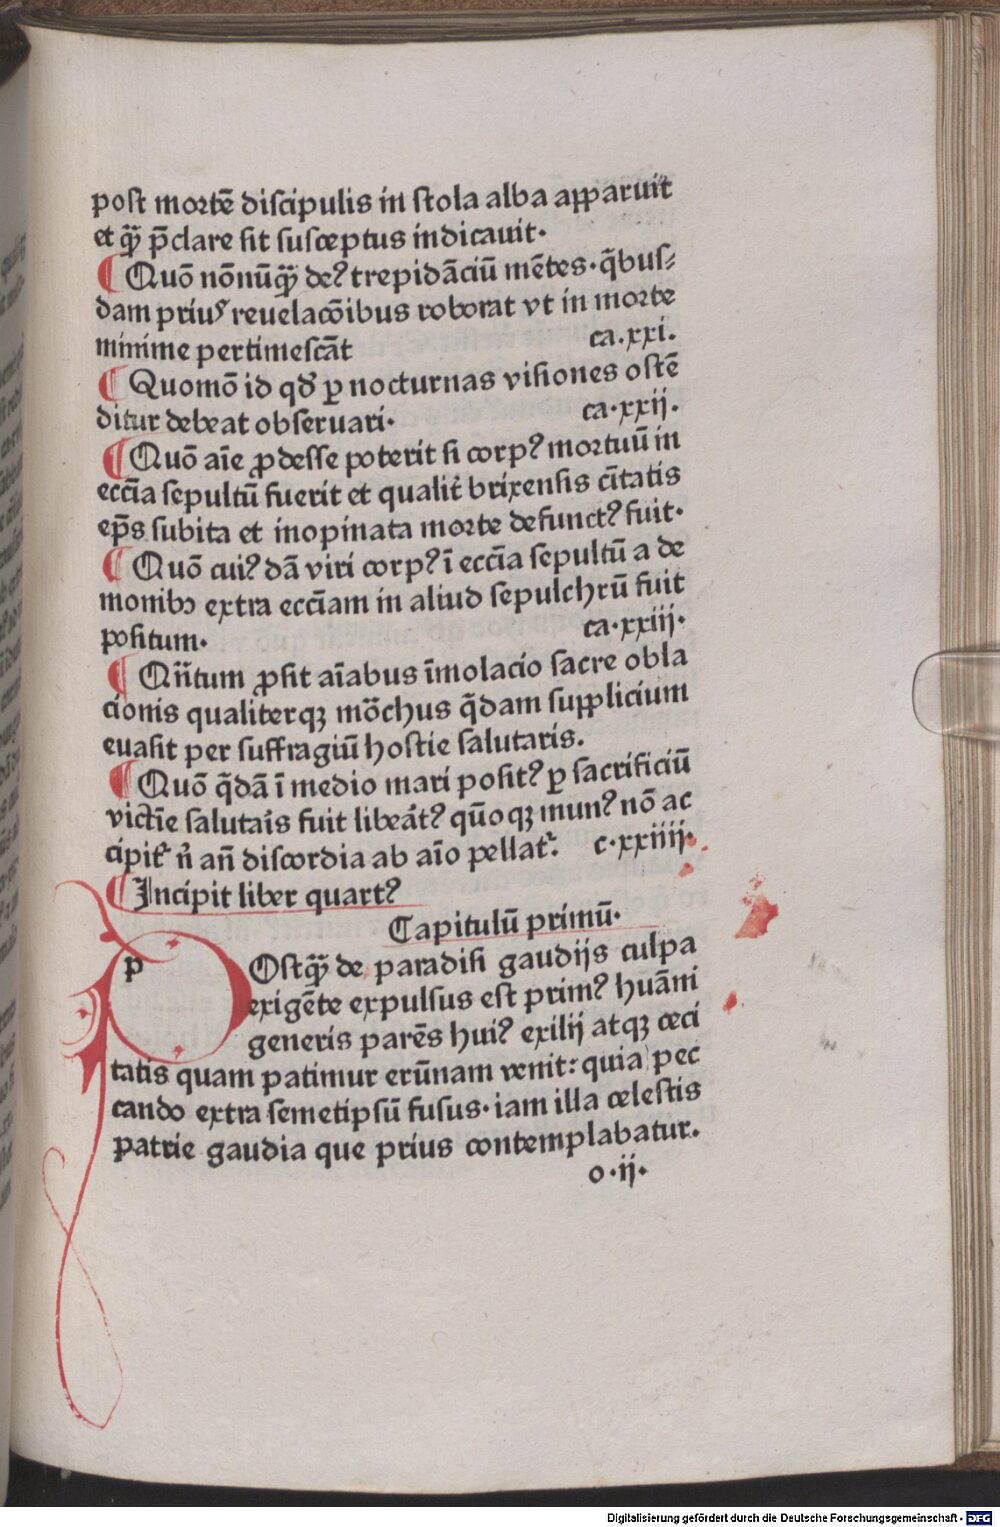 post mortē discipulis in stola alba apparuit
et q̄ȝ p̄clare sit susceptus indicauit·
¶ Quō nōnūq̄ȝ deꝰ trepidāciū mētes·q̄bus⸗
dam priuꝰ reuelacōibus roborat vt in morte
minime pertimescāt ca.xxi.
¶ Quomō id qđ ꝑ nocturnas visiones ostē
ditur debeat obseruari· ca·xxij·
¶ Quō aīe ꝓdesse poterit si corpꝰ mortuū in
eccīa sepultū fuerit et qualit̄ brixensis cītatis
ep̄s subita et inopinata morte defunctꝰ fuit·
¶ Quō cuiꝰdā viri corpꝰ ī eccīa sepultū a de
monibꝫ extra eccīam in aliud sepulchrū fuit
positum· ca·xxiij·
¶ Qn̄tum ꝓsit aīabus īmolacio sacre obla
cionis qualiterqꝫ mōchus q̄dam supplicium
euasit per suffragiū hostie salutaris.
¶ Quō q̄dā ī medio mari positꝰ ꝑ sacrificiū
victīe salutaīs fuit libeātꝰ qūoqꝫ munꝰ nō ac
cipit᷑ n̄ an̄ discordia ab aīo pellat᷑. c·xxiiij·
¶ Incipit liber quartꝰ
Capitulū primū·
p Ostq̄ȝ de paradisi gaudijs culpa
exigēte expulsus est primꝰ huāni
generis parēs huiꝰ exilij atqꝫ ceci
tatis quam patimur erūnam venit: quia pec
cando extra semetipsū fusus· iam illa celestis
patrie gaudia que prius contemplabatur.
o·ij·
Digitalisierung gefördert durch die Deutsche Forschungsgemeinschaft - DFG